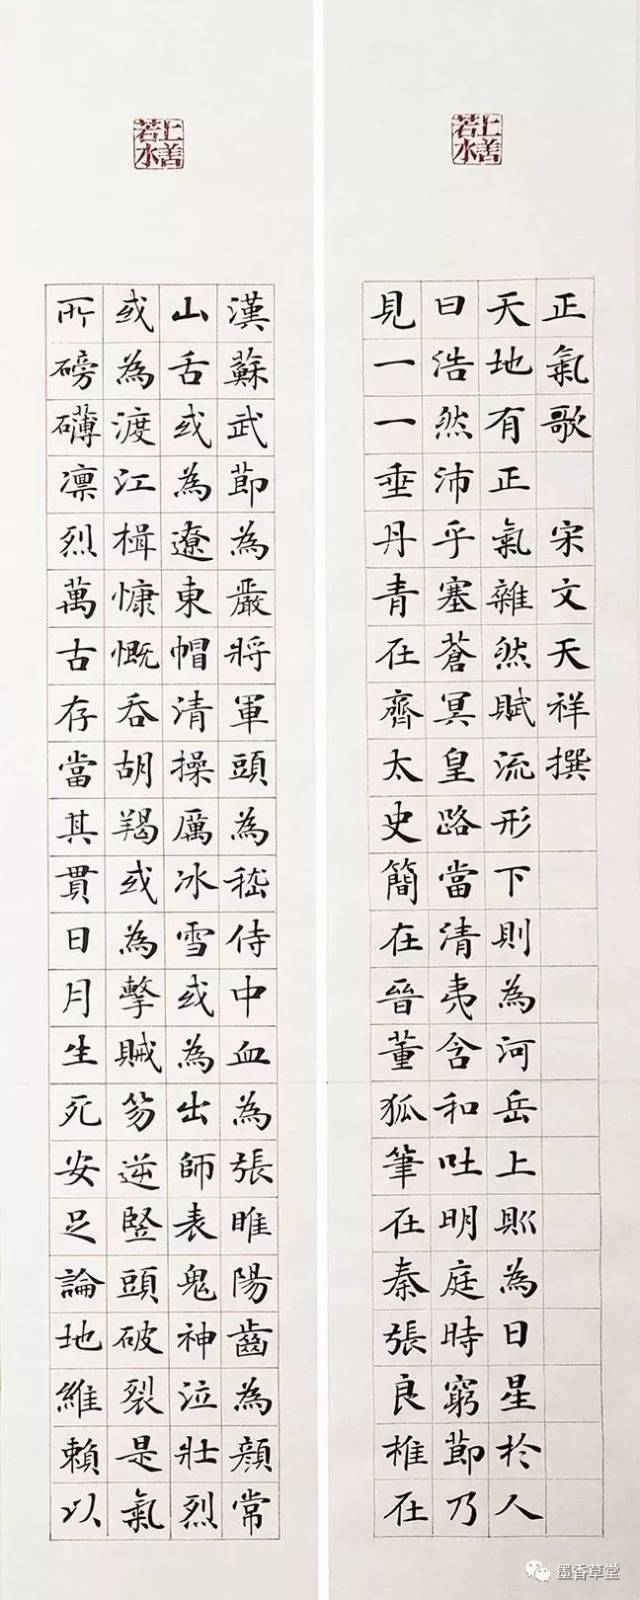 上善若水
正氣歌 宋文天祥撰
天地有正氣雜然賦流形下則為河岳上則為日星於人
曰浩然沛乎塞蒼冥皇路當清夷含和吐明庭時窮節乃
見一一垂丹青在齊太史簡在晉董狐筆在秦張良椎在
上善若水
漢蘇武節為嚴將軍頭為嵇侍中血為張睢陽齒為顏常
山舌或為遼東帽清操厲冰雪或為出師表鬼神泣壯烈
或為渡江楫慷慨吞胡羯或為擊賊笏逆豎頭破裂是氣
所磅礴凛烈萬古存當其貫日月生死安足論地維賴以
墨香草堂